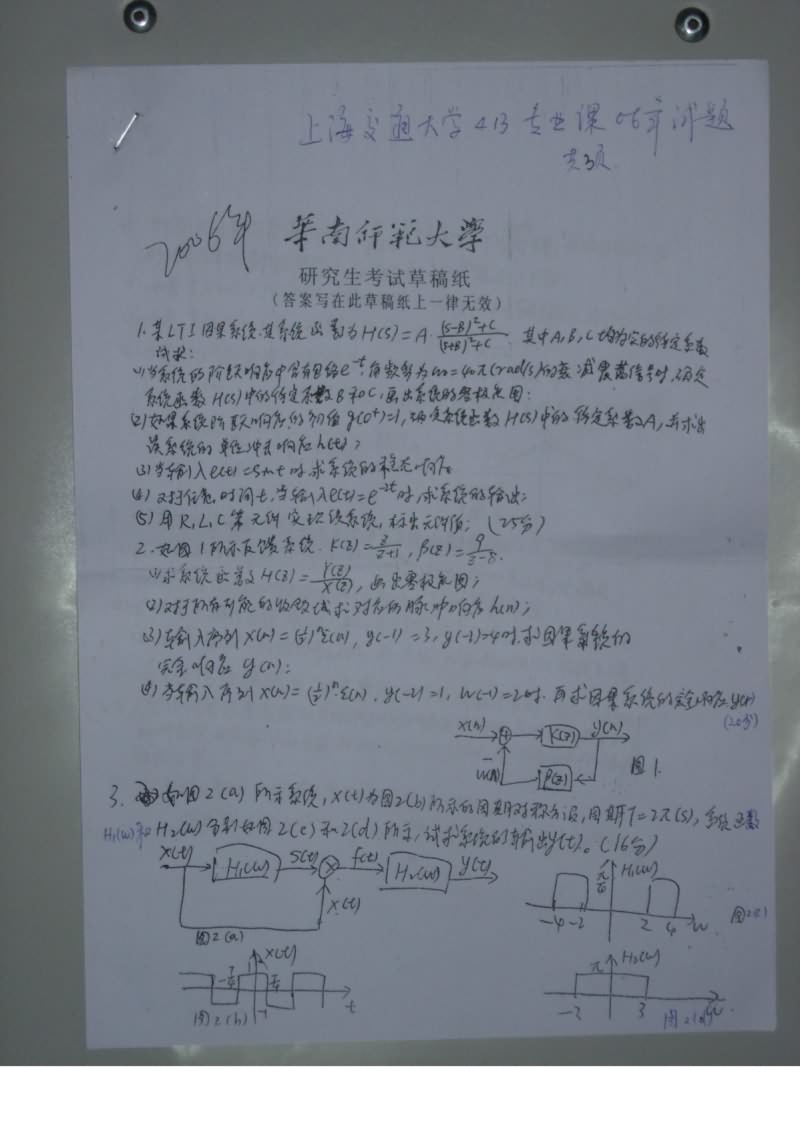 上海交通大学413专业课06年试题
共3页
2006年
华南师范大学
研究生考试草稿纸
(答案写在此草稿纸上一律无效)
1. 某LTI因果系统,其系统函数为H(s)=A·((s-B)²+C)/((s+B)²+C). 其中A,B,C均为实的待定系数
试求:
(1)当系统的阶跃响应中含有包络e^-t,角频率为ω=4π(rad/s)的衰减震荡信号时,确定
系统函数H(s)中的待定系数B和C,画出系统的零极点图;
(2)如果系统阶跃响应的初值g(0⁺)=1,确定系统函数H(s)中的待定系数A,并求出
该系统的单位冲击响应h(t);
(3)当输入e(t)=sint时,求系统的稳态响应
(4)对于任意时间t,当输入e(t)=e^-2t时,求系统的输出;
(5)用R,L,C等元件实现该系统,标出元件值; (25分)
2. 如图1所示反馈系统. K(z)=z/(z+1), β(z)=9/(z-8).
(1)求系统函数H(z)=Y(z)/X(z), 画出零极点图;
(2)对于所有可能的收敛域求对应的脉冲响应h(n);
(3)当输入序列x(n)=(1/2)^n ε(n), y(-1)=3, y(-2)=4时,求因果系统的
完全响应y(n);
(4)当输入序列x(n)=(1/2)^n·ε(n), y(-2)=1, w(-1)=2时.再求因果系统的完全响应y(n)
(20分)
x(n) + K(z) y(n)
w(n) β(z) 图1.
3. 如图2(a)所示系统,x(t)为图2(b)所示的周期对称方波,周期T=2π(s),系统函数
H₁(ω)和H₂(ω)分别如图2(c)和2(d)所示,试求系统的输出y(t)。(16分)
x(t) H₁(ω) s(t) × f(t) H₂(ω) y(t)
x(t)
图2(a)
H₁(ω)
-4 -2 2 4 ω 图2(c)
x(t)
1
-1 t
图2(b)
H₂(ω)
π
-3 3 ω
图2(d)